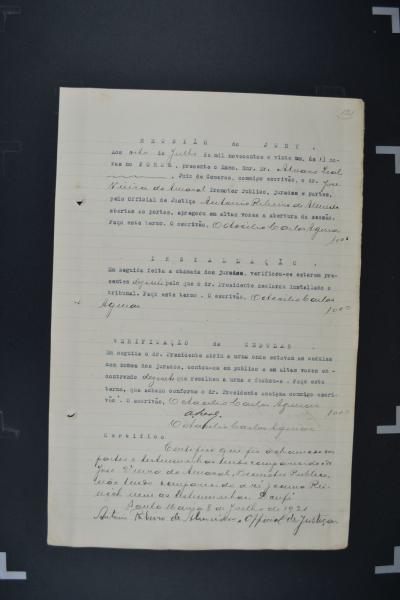 REUNIÃO do JURY.
Aos oito de Julho de mil novecentos e vinte um, ás 13 ho-
ras no FORUM, presente o Exmo. Snr. Dr. Alvaro
, Juiz de Comarca, commigo escrivão, o dr. José
Vieira do Amaral Promotor Publico, jurados e partes,
pelo Official de Justiça Antonio Ribeiro de Almeida
abertas as portas, apregoou em altas vozes a abertura da sessão.
Faço este termo. O escrivão, Octacilio Carlos Aguiar
INSTALLAÇÃO.
Em seguida feita a chamada dos jurados, verificou-se estarem pre-
sentes dezoito pelo que o dr. Presidente declarou installado o
tribunal. Faço este termo. O escrivão, Octacilio Carlos
Aguiar
VERIFICAÇÃO de CEDULAS
Em seguida o dr. Presidente abriu a urna onde estavam as cedulas
com nomes dos jurados, contou-as em publico e em altas vozes en-
contrando dezoito que recolheu a urna e fechou-a. Faço este
termo, que achado conforme o dr. Presidente assigna commigo escri-
vão. O escrivão, Octacilio Carlos Aguiar
Octacilio Carlos Aguiar
Certifico
Certifico que fiz a chamada
partes e testemunhas tendo comparecido Dr.
José Vieira do Amaral, Promotor Publico,
não tendo comparecido a ré Joanna
nem as testemunhas. Doufé
8 de Julho de 1921
Antonio Ribeiro de Almeida, Official de Justiça